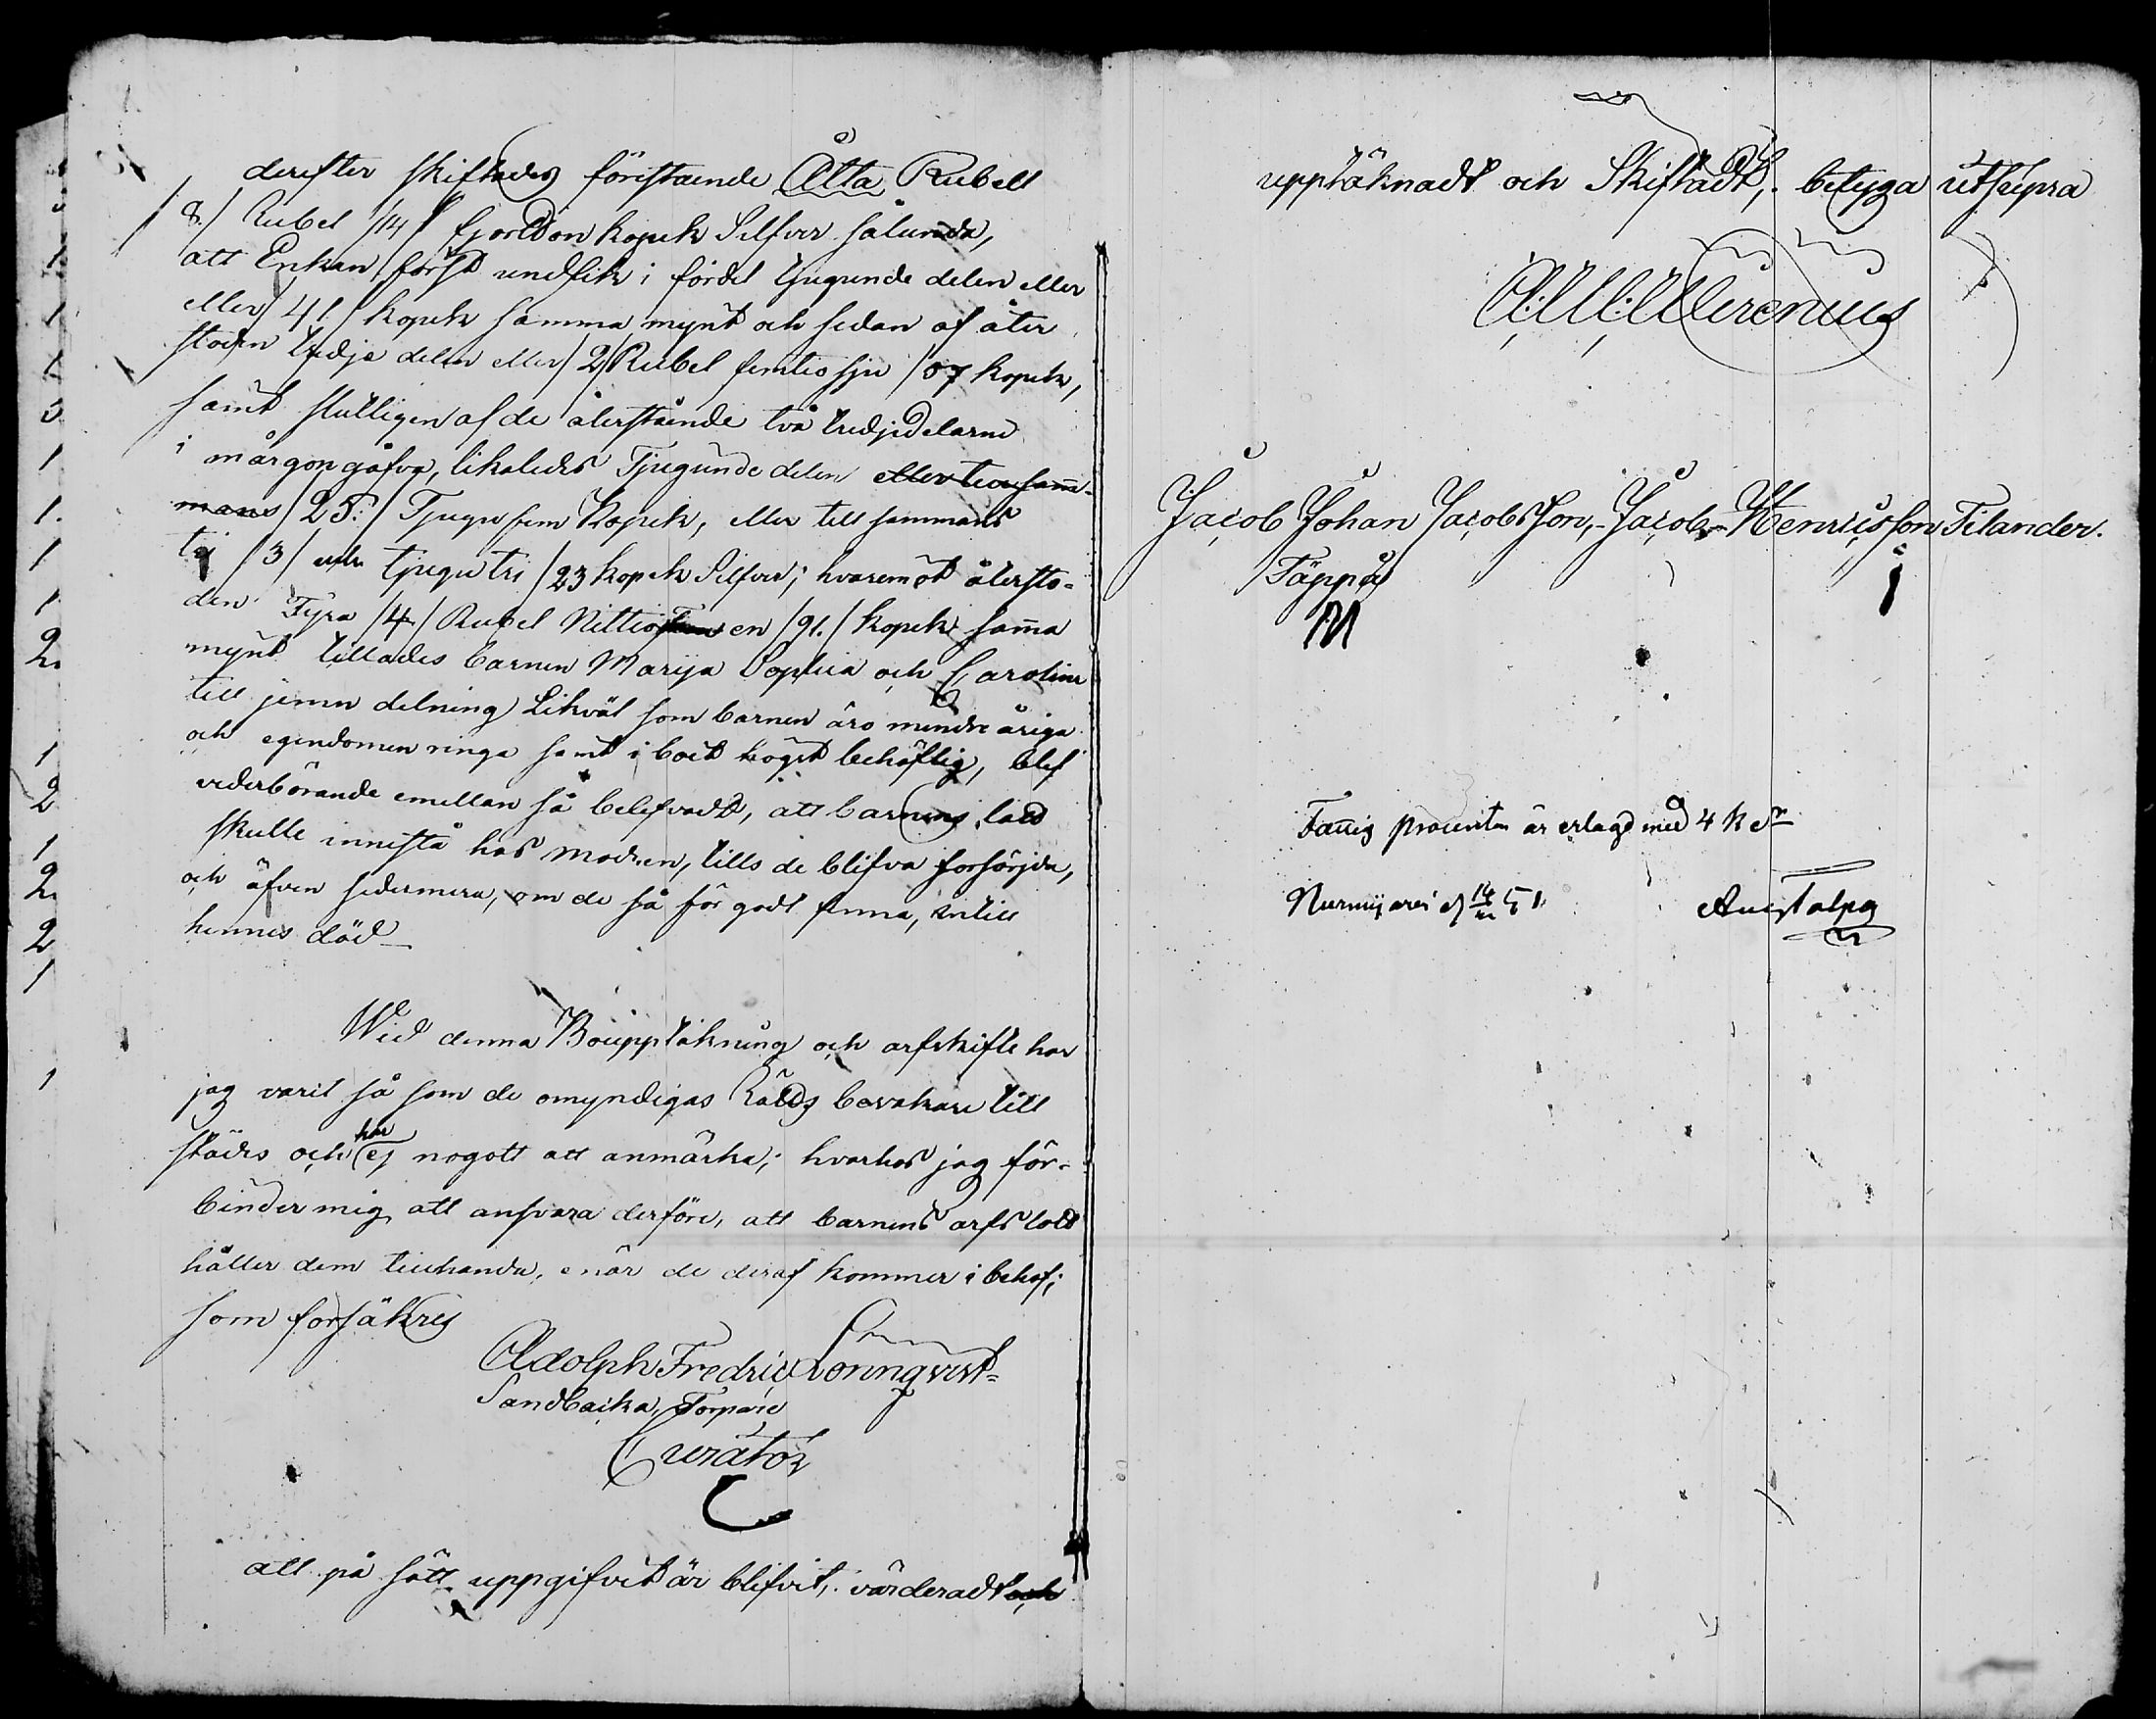 derefter skiftades förestaende Åtta Rubell
/8/ Rubel /14/ fjorton kopek Silfver sålunda,
att Enkan först undfik i fördel tjugunde delen eller
eller /41/ kopek samma mynt och sedan af åter
stoden tredje delen eller /2/ Rubel femtio sju /57 kopek,
samt slutligen af de återstående två tredjedelarne
i mårgongåfva, likaledes Tjugunde delen eller tillsam-
mans /25:/ Tjugu fem Kopek, eller till sammans
tri /3/ rub. tjugu tri /23 kopek Silfver; hvaremot återsto-
den Fyra /4/ Rubel Nittio en /91./ kopek sama
mynt tillades barnen Marija Sophia och Carolina
till jemn delning Likväl som barnen äro mindre åriga
och egendomen ringa samt i boet högst behöflig, blef
vederbörande emellan så belefvadt, att barnens lott
skulle innestå hos modren, tills de blifva forsörjda,
och äfven sedermera, om de så för godt finna, intill
hennes död
Wid denna Boupptäkning och arfskifte har
jag varit så som de omyndigas Rätts bevakare till
städes och har ej nogott att anmärka; hvarhos jag för-
binder mig att ansvara derföre, att barnens arfs lott
håller dem tillhanda, enär de deraf kommer i behof;
som forsäkres
Adolph Fredric Lönnqvist
Sandbacka, Torpare
Curator
att på sätt uppgifvit är blifvit, värderadt och
upptäknadt och Skiftadt; betyga utsupra
A: M: Merenius
Jacob Johan Jacobsson, Jacob Henricsson Tilander.
Täppå
M
Fattig procenten är erlagd med 4 k Sr
Nurmijärvi d 14 51